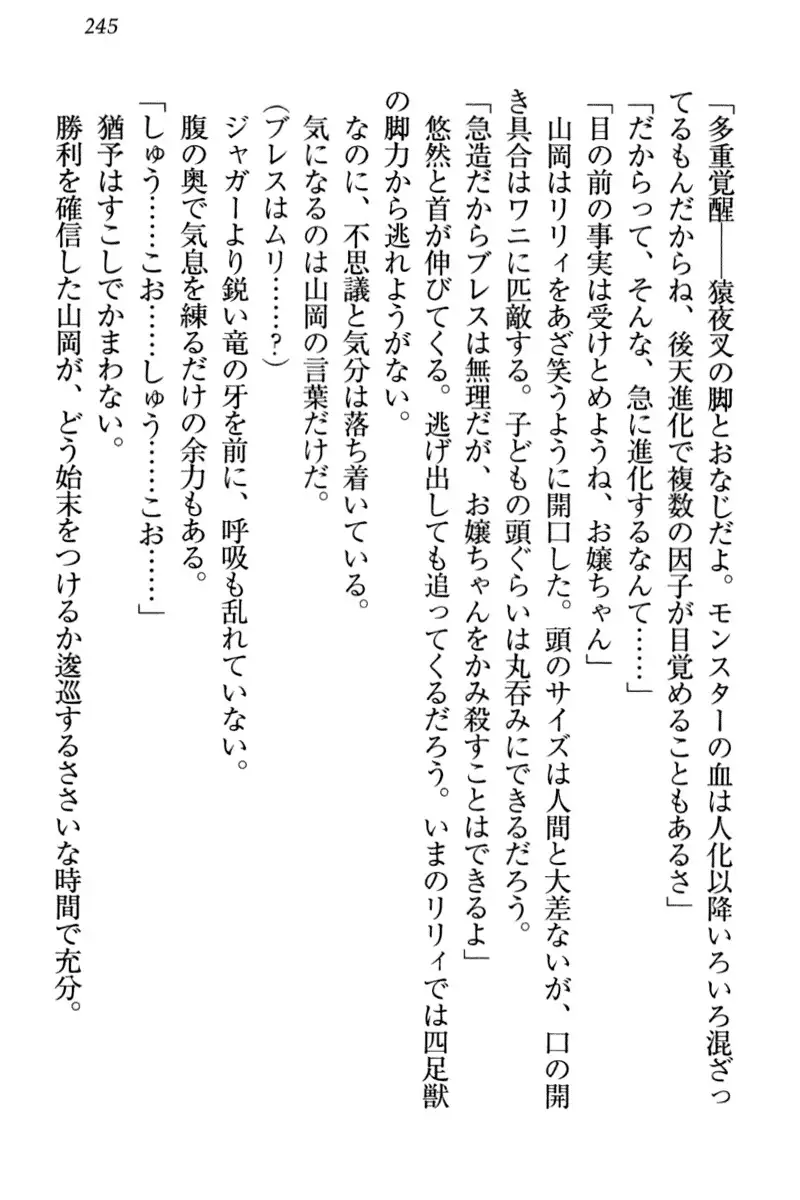 245
「多重覚醒――猿夜叉の脚とおなじだよ。モンスターの血は人化以降いろいろ混ざっ
てるもんだからね、後天進化で複数の因子が目覚めることもあるさ」
「だからって、そんな、急に進化するなんて……」
「目の前の事実は受けとめようね、お嬢ちゃん」
山岡はリリィをあざ笑うように開口した。頭のサイズは人間と大差ないが、口の開
き具合はワニに匹敵する。子どもの頭ぐらいは丸呑みにできるだろう。
「急造だからブレスは無理だが、お嬢ちゃんをかみ殺すことはできるよ」
悠然と首が伸びてくる。逃げ出しても追ってくるだろう。いまのリリィでは四足獣
の脚力から逃れようがない。
なのに、不思議と気分は落ち着いている。
気になるのは山岡の言葉だけだ。
（ブレスはムリ……？）
ジャガーより鋭い竜の牙を前に、呼吸も乱れていない。
腹の奥で気息を練るだけの余力もある。
「しゅう……こお……しゅう……こお……」
猶予はすこしでかまわない。
勝利を確信した山岡が、どう始末をつけるか逡巡するささいな時間で充分。